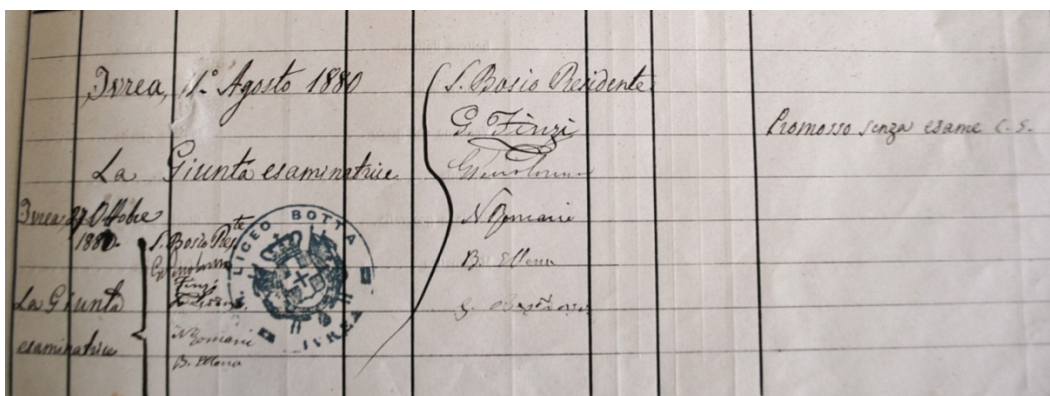 Ivrea, 1° Agosto 1880
La Giunta esaminatrice
S. Bosio Presidente
G. Finzi
B. Ellena
Promosso senza esame C. S.
Ivrea Ottobre
1880.
La Giunta
esaminatrice
S. Bosio Pres.te
Finzi
B. Ellena
LICEO BOTTA
IVREA